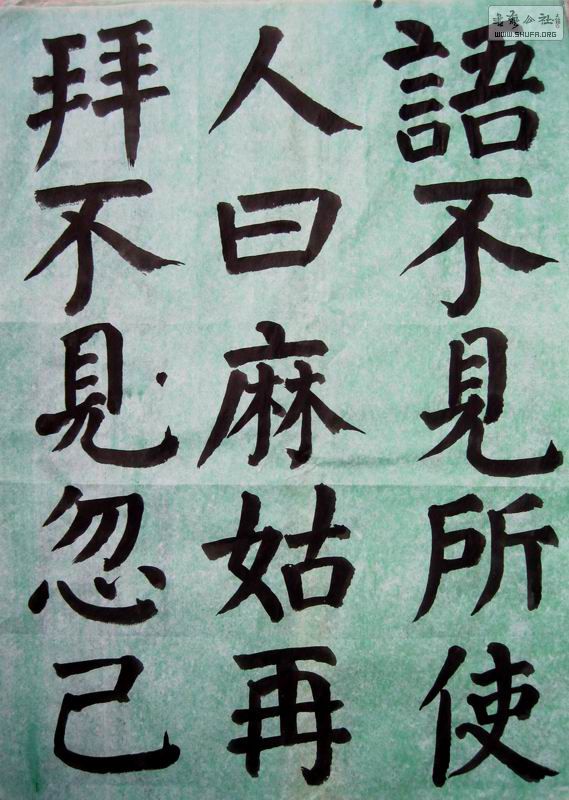 語不見所使
人曰麻姑再
拜不見忽己
書藝公社
WWW.SHUFA.ORG